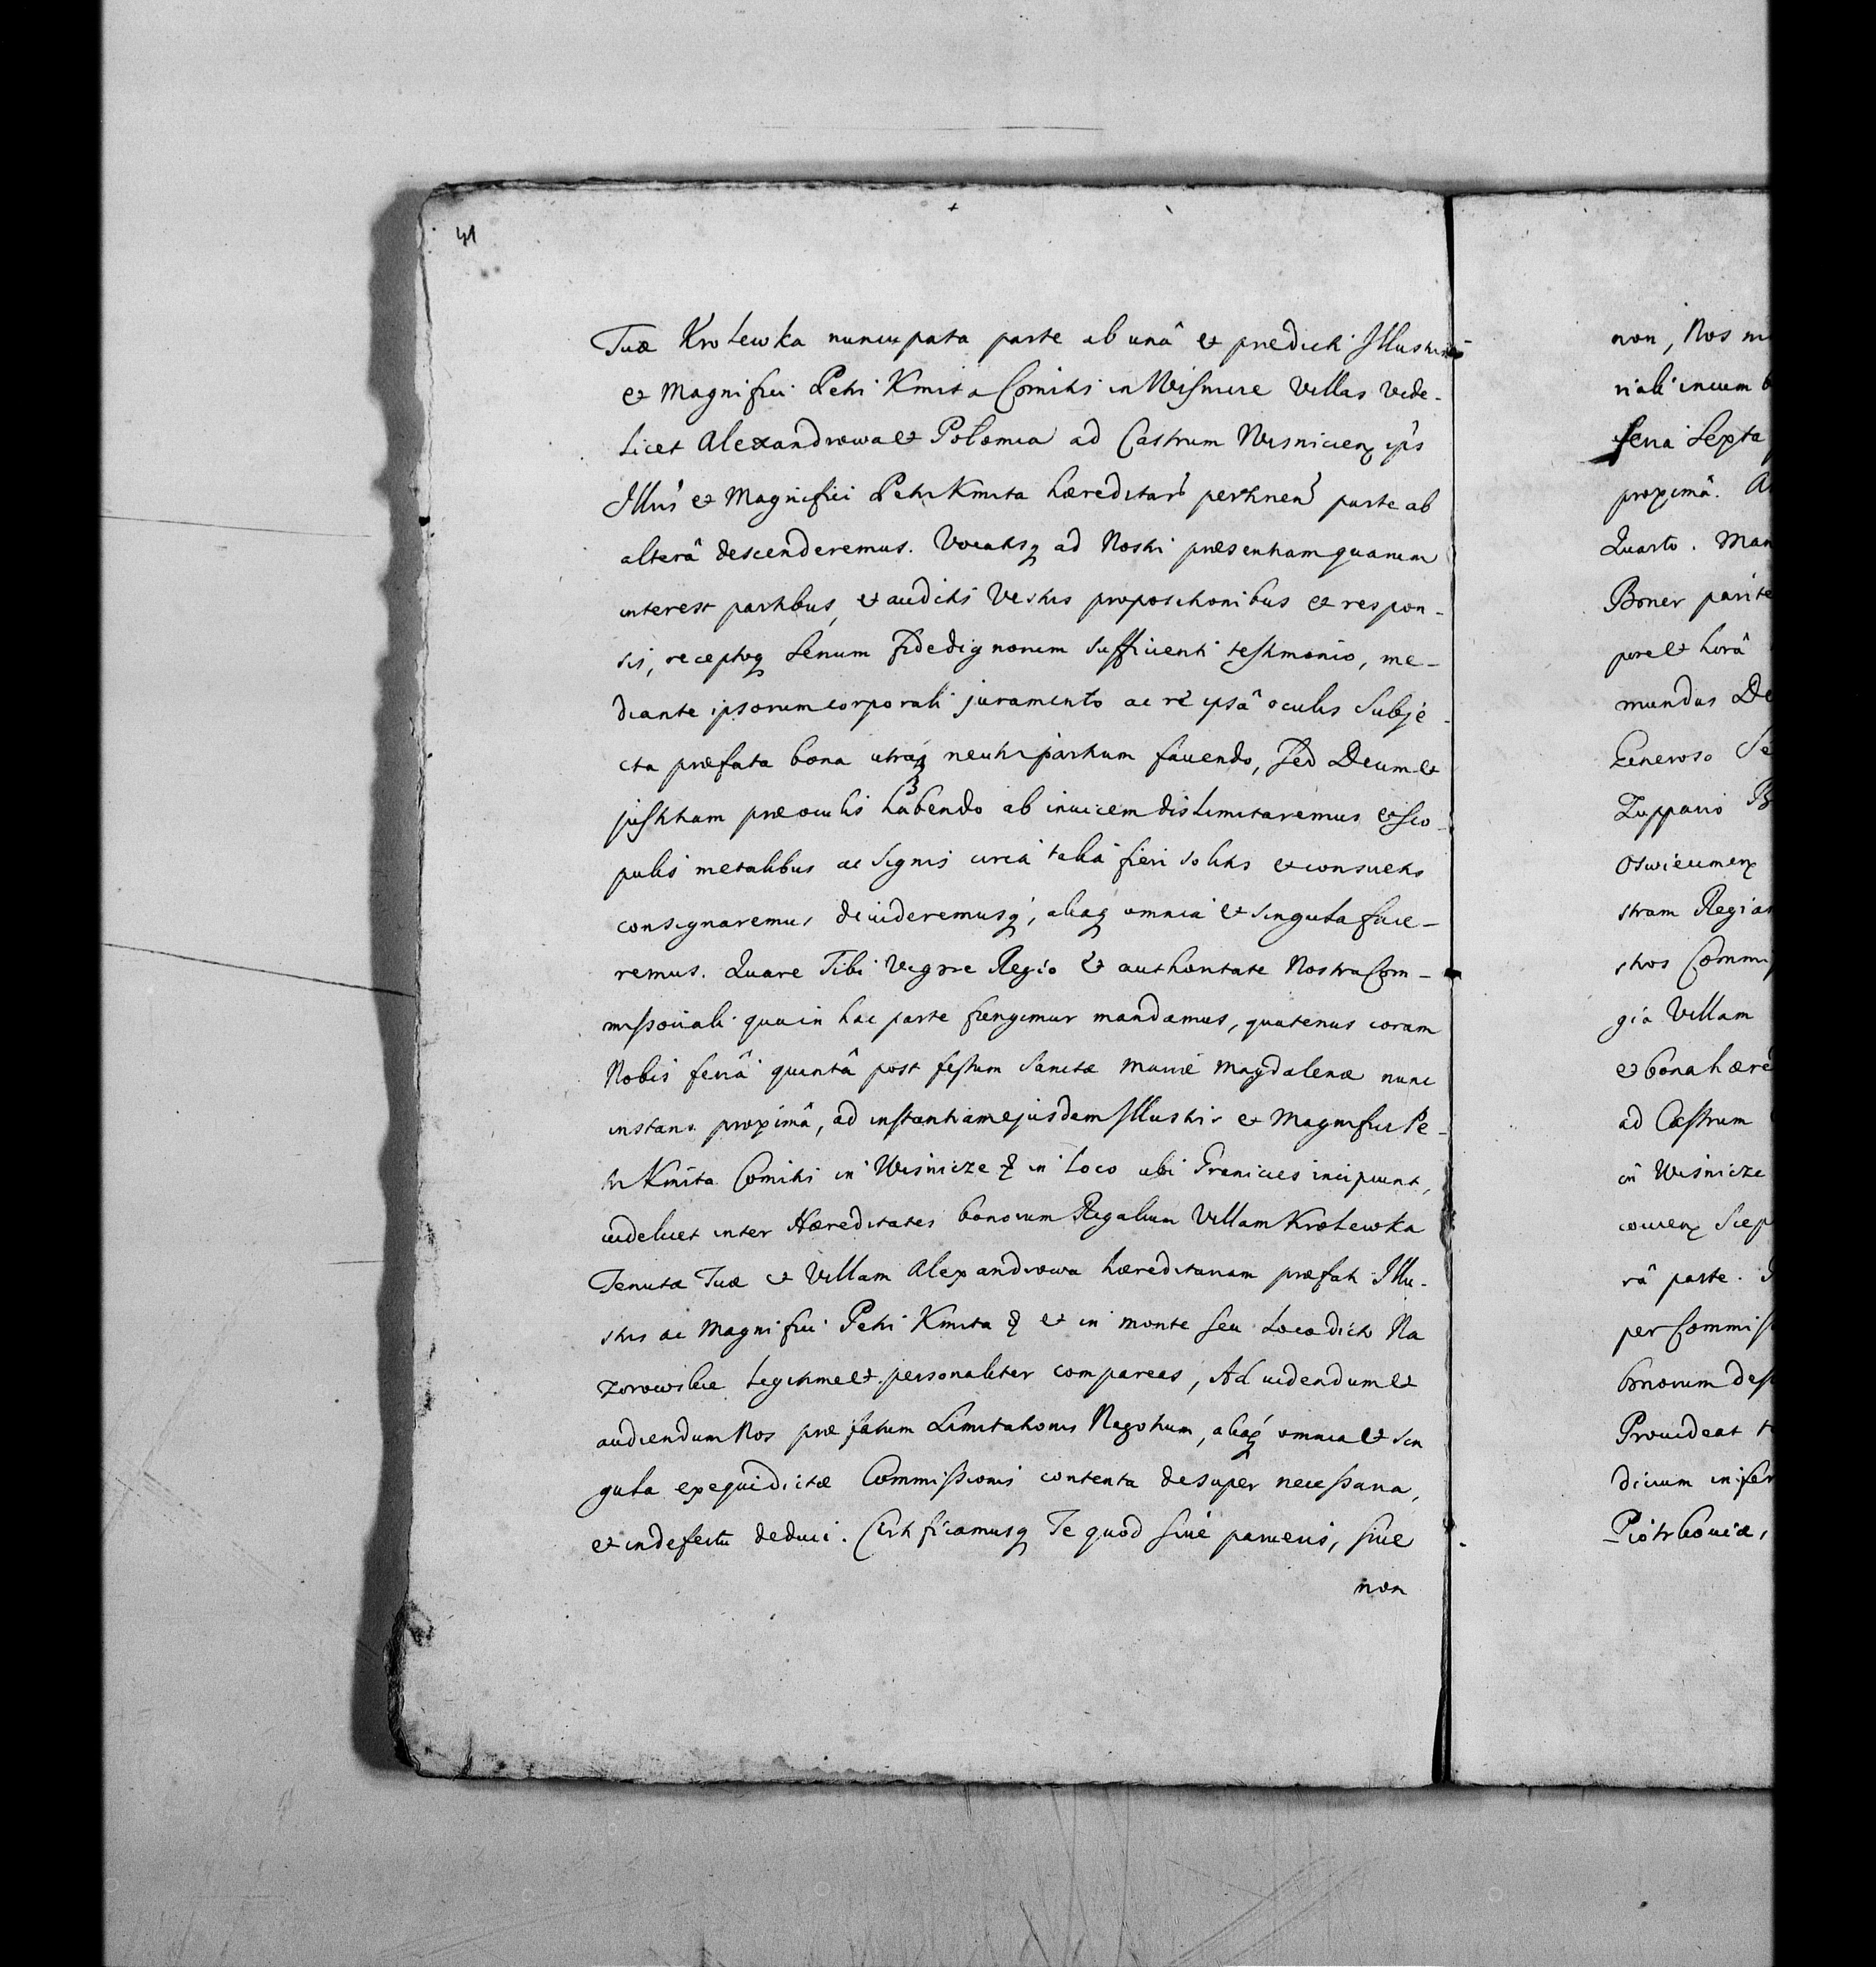 41
Tuæ Krolewka nuncupata parte ab unâ et prædicti Illustris
et Magnifici Petri Kmita Comitis in Wisnicze Villas vide-
licet Alexandrowa et Polomia ad Castrum Wisnicien ips
Illris et Magnifici Petri Kmita hæreditar pertinen parte ab
alterâ descenderemus. Vocatisq ad Nostri præsentiam quarum
interest partibus, et auditis Vestris propositionibus et respon-
sis, receptoq Senum fidedignorum sufficienti testimonio, me-
diante ipsorum corporali juramento ac re ipsâ oculis subje-
cta præfata bona utraq neutri partium fauendo, sed Deum et
justitiam præ oculis habendo ab inuicem dislimitaremus et sco-
pulis metalibus ac signis circa talia fieri solitis et consuetis
consignaremus diuideremusq, aliaq omnia et singula face-
remus. Quare Tibi Vigore Regio et authoritate Nostra Com-
missoriali qua in hac parte fungimur mandamus, quatenus coram
Nobis feriâ quintâ post festum Sanctæ Mariæ Magdalenæ nunc
instans proximâ, ad instantiam ejusdem Illustris et Magnifici Pe-
tri Kmita Comitis in Wisnicze & in loco ubi Granicies incipiunt,
uidelicet inter Hæreditates bonorum Regalium Villam Krolewka
Tenutæ Tuæ et Villam Alexandrowa hæreditariam præfati Illu-
stris ac Magnifici Petri Kmita & et in monte seu Loco dicto Na
Zorowskie legitime et personaliter compareas, Ad uidendum et
audiendum Nos præfatum Limitationis Negotium, aliaq omnia et sin
gula exequi dictæ Commissionis contenta desuper necessaria,
et in defectu deduci. Certificamusq Te quod siue parueris, siue
non
non, Nos
riali incum
feria Sexta
proximâ.
Quarto. Man
Boner parite
pore et horâ
mundus De
Generoso Se
Zuppario B
Oswiecimen
stram Regiam
stros Commis
gia Villam
et bona hære
ad Castrum
in Wisnicze
couien Scep
râ parte.
per Commiss
bonorum des
Prouideat
dicium in
Piotrkouiæ,